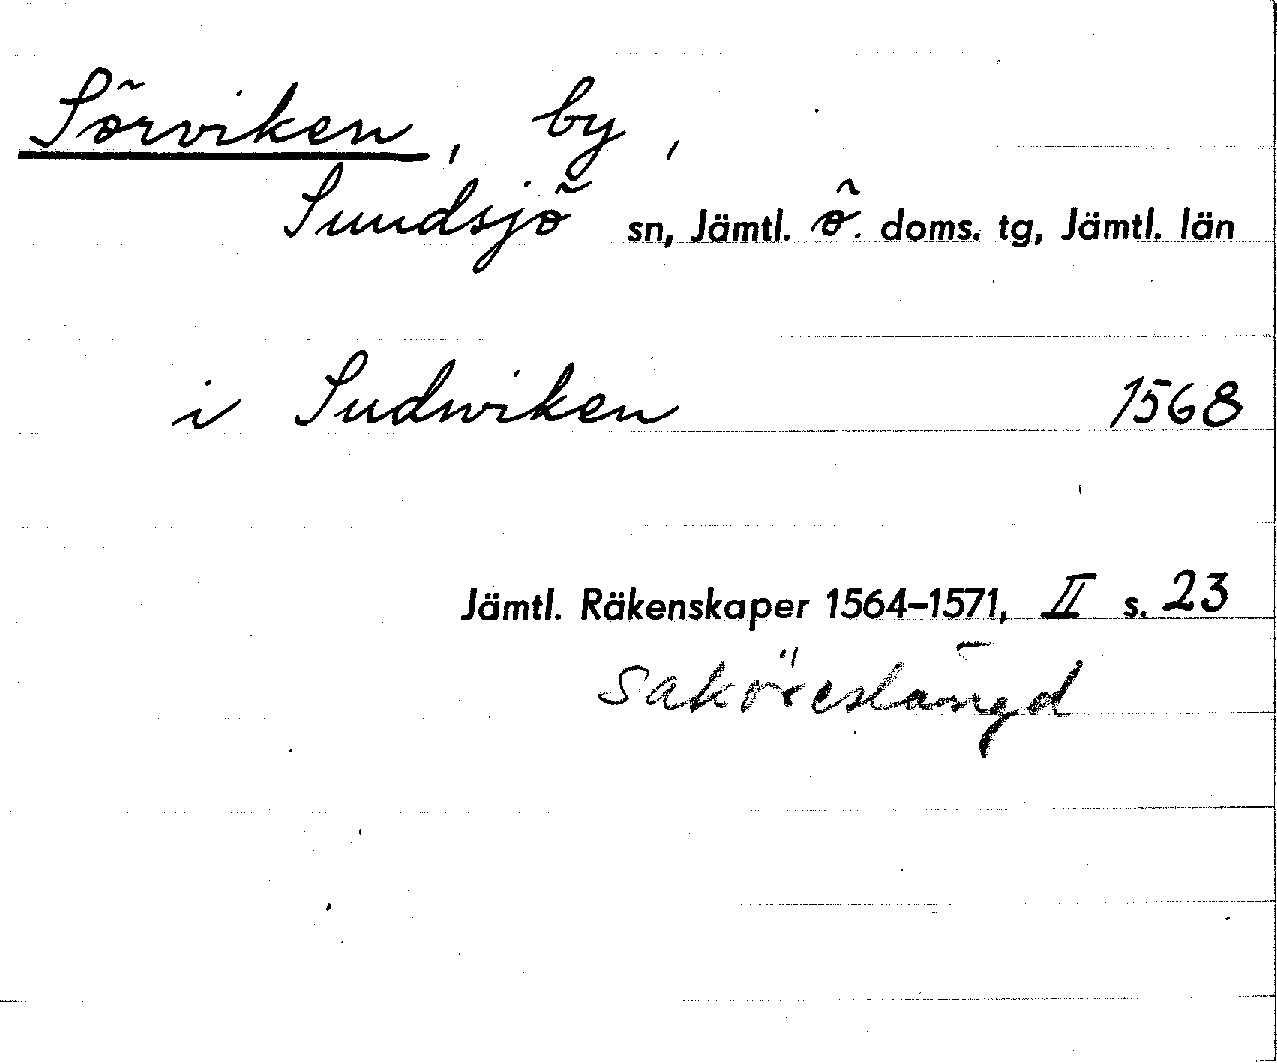 Sörviken, by,
Sundsjö sn, Jämtl. ö. doms. tg, Jämtl. län
i Sudwiken 1568
Jämtl. Räkenskaper 1564-1571, II s. 23
saköreslängd